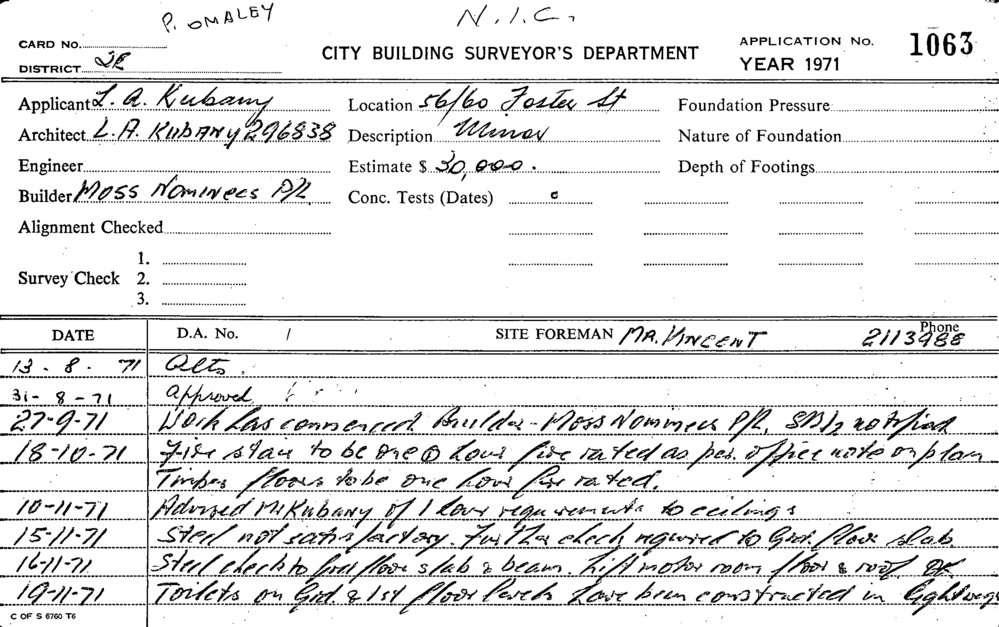 P. OMALEY
N.I.C.
CARD No.
DISTRICT
CITY BUILDING SURVEYOR'S DEPARTMENT
APPLICATION No. 1063
YEAR 1971
Applicant L. A. Kubany
Location 56/60 Foster St
Foundation Pressure
Architect L.A. KUBANY 296838
Description Minor
Nature of Foundation
Engineer
Estimate $ 30,000.
Depth of Footings
Builder Moss Nominees P/L
Conc. Tests (Dates)
Alignment Checked
Survey Check 1.
2.
3.
DATE D.A. No. SITE FOREMAN MR. VINCENT Phone 2113988
13 . 8 . 71 Alts.
31 - 8 - 71 Approved
27-9-71 Work has commenced Builder - Moss Nominees P/L, notified
18-10-71 Fire stair to be one hour fire rated as per office note on plan
Timber floors to be one hour fire rated.
10-11-71 Advised Mr Kubany of 1 hour requirements to ceilings
15-11-71 Steel not satisfactory. Further check required to Grd. floor slab
16-11-71 Steel check to floor slab & beam. Lift motor room floor & roof OK
19-11-71 Toilets on Grd. & 1st floor levels have been constructed in
C OF S 6760 T6